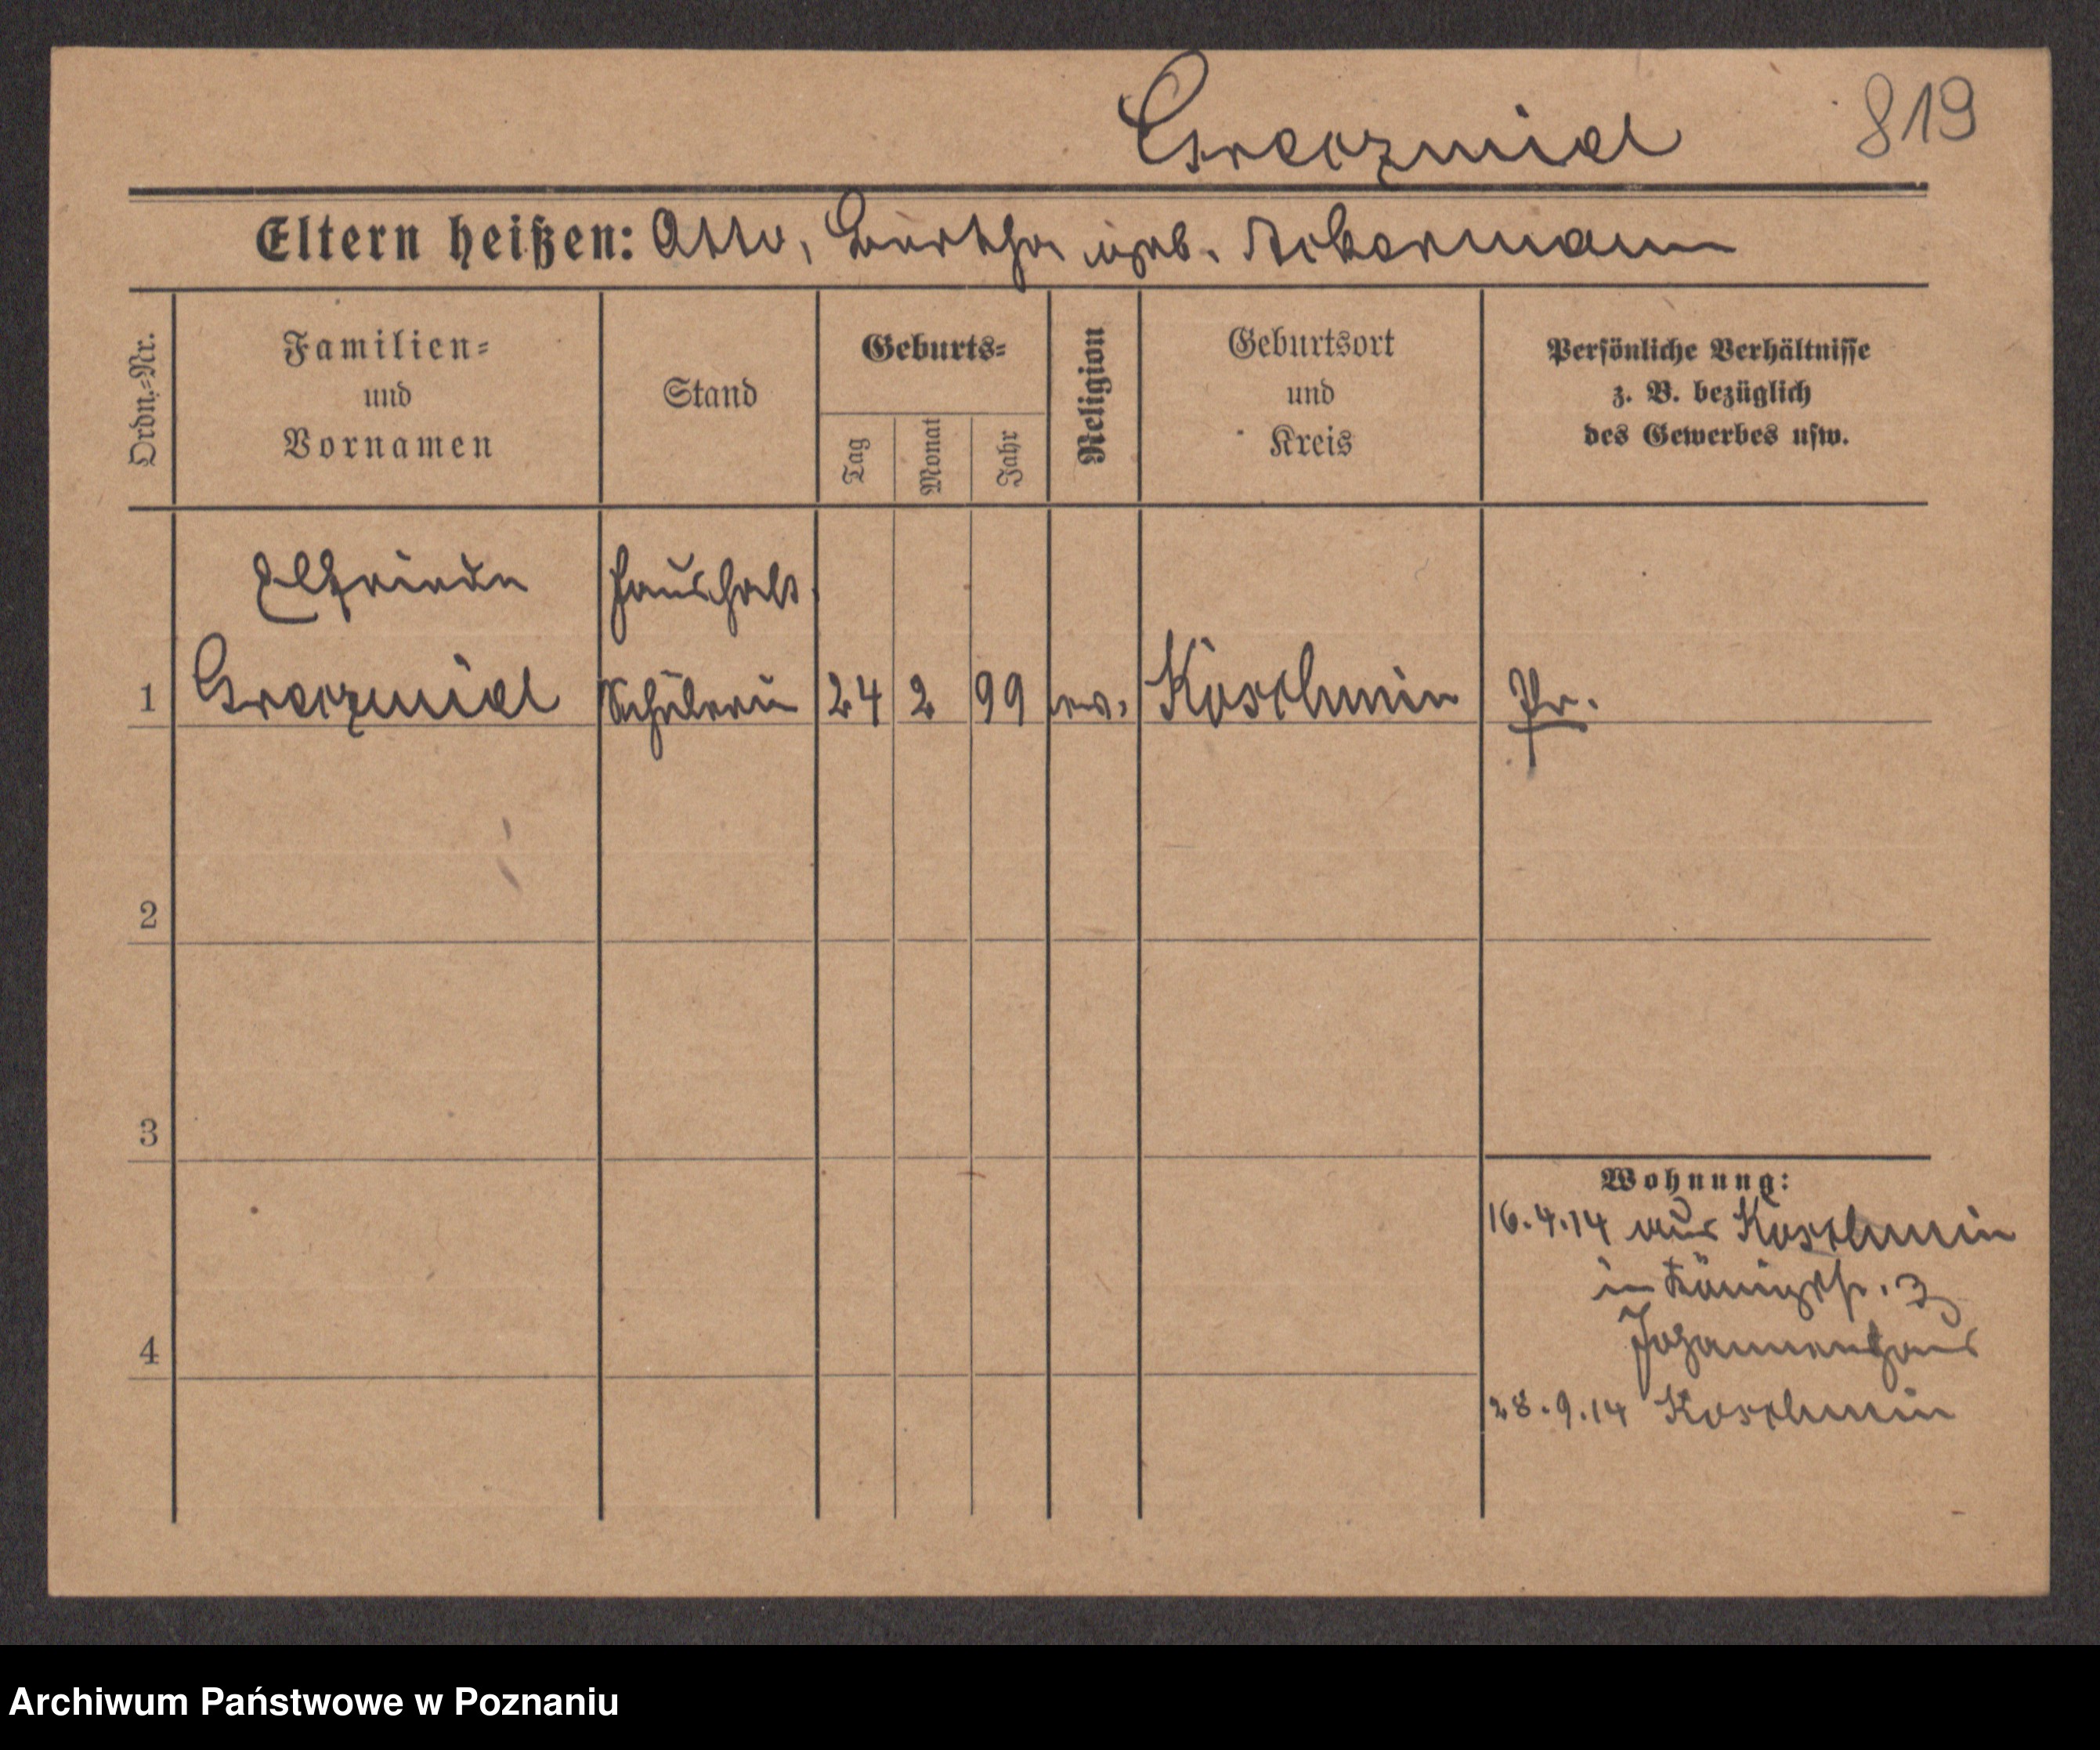 819
Eltern heißen: Otto, Bertha geb. Ackermann
Ordn.-Nr.
Familien-
und
Vornamen
Stand
Geburts-
Tag
Monat
Jahr
Religion
Geburtsort
und
Kreis
Persönliche Verhältnisse
z. B. bezüglich
des Gewerbes usw.
Elfriede
Haushalt.
1
Schülerin
24
2
99
ev.
Koschmin
Pr.
2
3
4
Wohnung:
16.4.14 aus Koschmin
in Königstr. 3
Johannenhaus
28.9.14 Koschmin
Archiwum Państwowe w Poznaniu